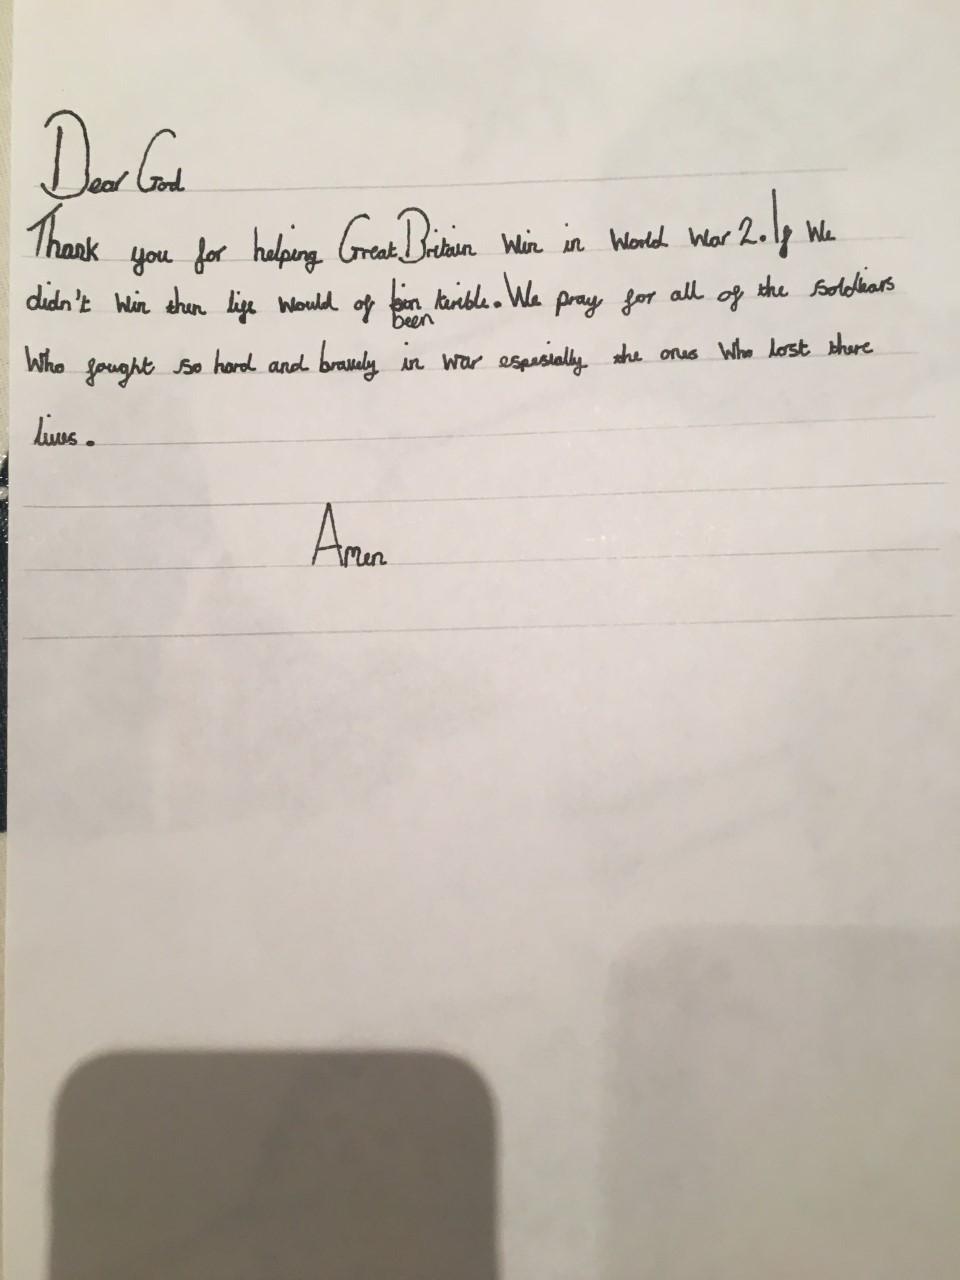 Dear God
Thank you for helping Great Britain win in World War 2. If We
didn't win then life would of bin terible. We pray for all of the soldiears
been
Who fought so hard and bravely in war espesially the ones Who lost there
lives.
Amen